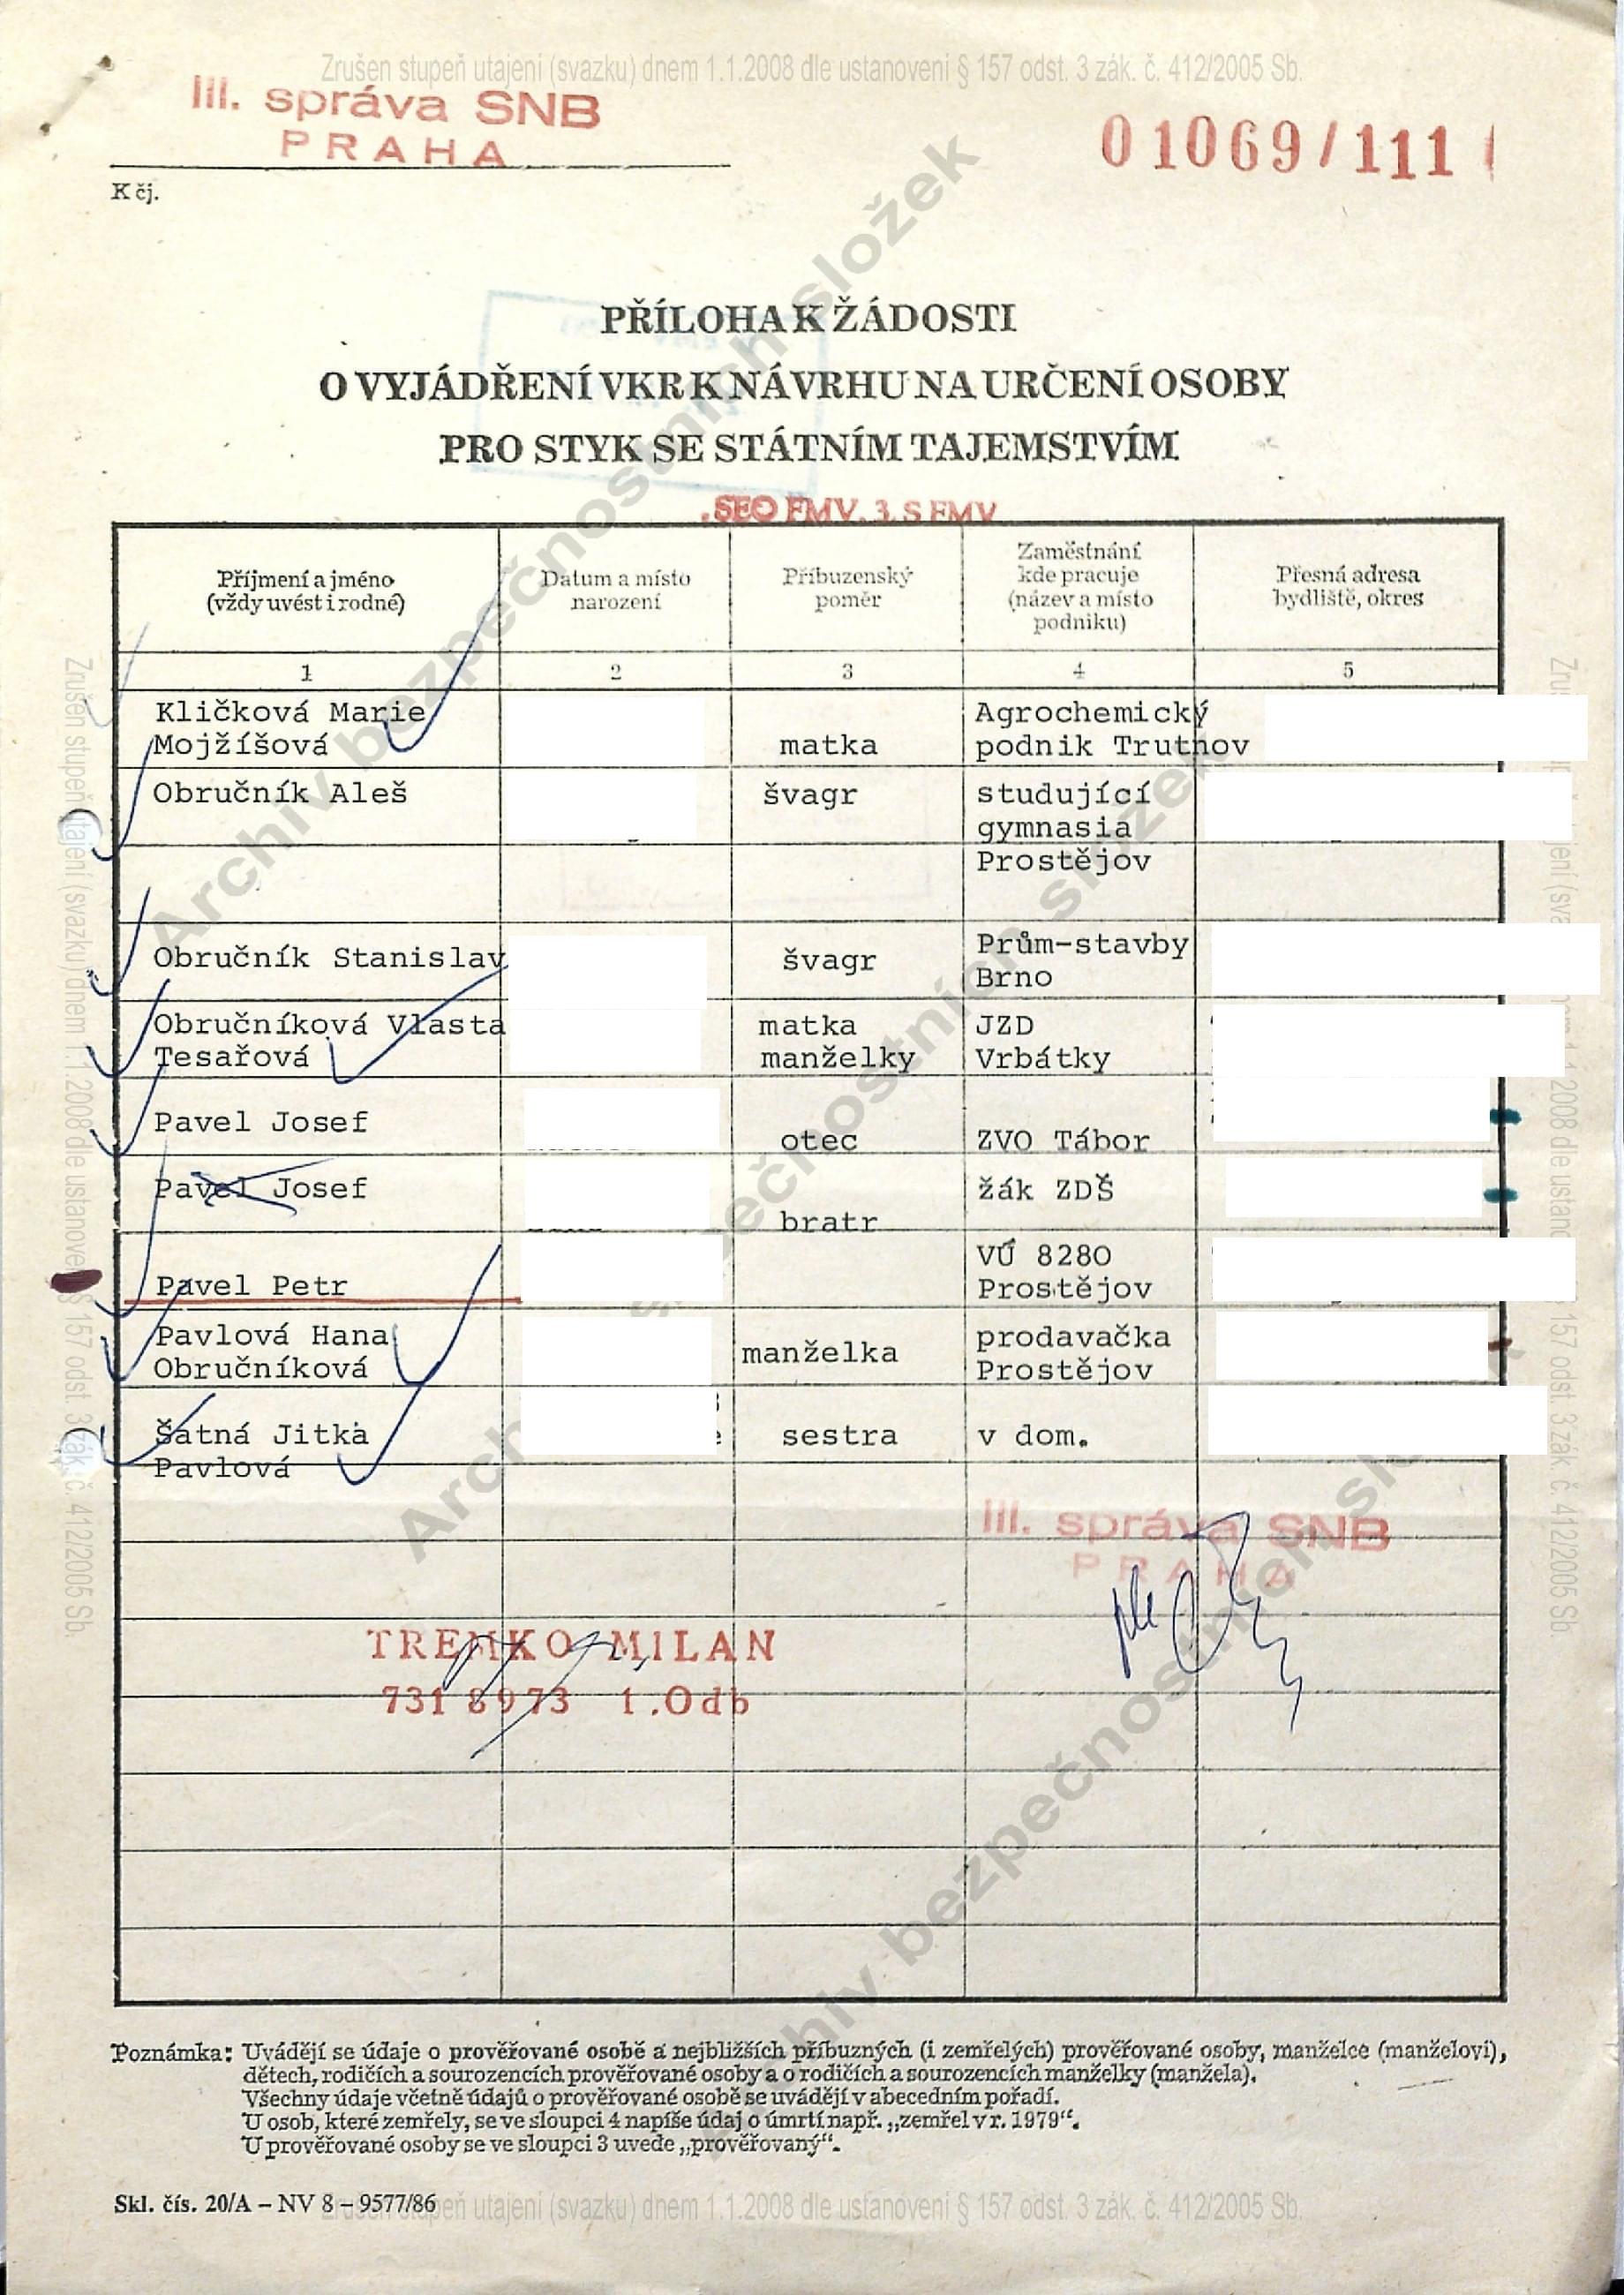 Zrušen stupeň utajení (svazku) dnem 1.1.2008 dle ustanovení § 157 odst. 3 zák. č. 412/2005 Sb.
III. správa SNB
PRAHA
01069/111
K čj.
PŘÍLOHA K ŽÁDOSTI
O VYJÁDŘENÍ VKR K NÁVRHU NA URČENÍ OSOBY
PRO STYK SE STÁTNÍM TAJEMSTVÍM
SEO FMV, 3. S FMV
Příjmení a jméno
(vždy uvést i rodné)
Datum a místo
narození
Příbuzenský
poměr
Zaměstnání
kde pracuje
(název a místo
podniku)
Přesná adresa
bydliště, okres
1 2 3 4 5
Kličková Marie Agrochemický
Mojžíšová matka podnik Trutnov
Obručník Aleš švagr studující
gymnasia
Prostějov
Obručník Stanislav švagr Prům-stavby
Brno
Obručníková Vlasta matka JZD
Tesařová manželky Vrbátky
Pavel Josef otec ZVO Tábor
Pavel Josef bratr žák ZDŠ
VÚ 8280
Pavel Petr Prostějov
Pavlová Hana manželka prodavačka
Obručníková Prostějov
Šatná Jitka sestra v dom.
Pavlová
III. správa SNB
PRAHA
TREMKO MILAN
731 8973 1.Odb
Poznámka: Uvádějí se údaje o prověřované osobě a nejbližších příbuzných (i zemřelých) prověřované osoby, manželce (manželovi),
dětech, rodičích a sourozencích prověřované osoby a o rodičích a sourozencích manželky (manžela).
Všechny údaje včetně údajů o prověřované osobě se uvádějí v abecedním pořadí.
U osob, které zemřely, se ve sloupci 4 napíše údaj o úmrtí např. „zemřel v r. 1979“.
U prověřované osoby se ve sloupci 3 uvede „prověřovaný“.
Skl. čís. 20/A – NV 8 – 9577/86
Zrušen stupeň utajení (svazku) dnem 1.1.2008 dle ustanovení § 157 odst. 3 zák. č. 412/2005 Sb.
Zrušen stupeň utajení (svazku) dnem 1.1.2008 dle ustanovení § 157 odst. 3 zák. č. 412/2005 Sb.
Archiv bezpečnostních složek
Archiv bezpečnostních složek
Archiv bezpečnostních složek